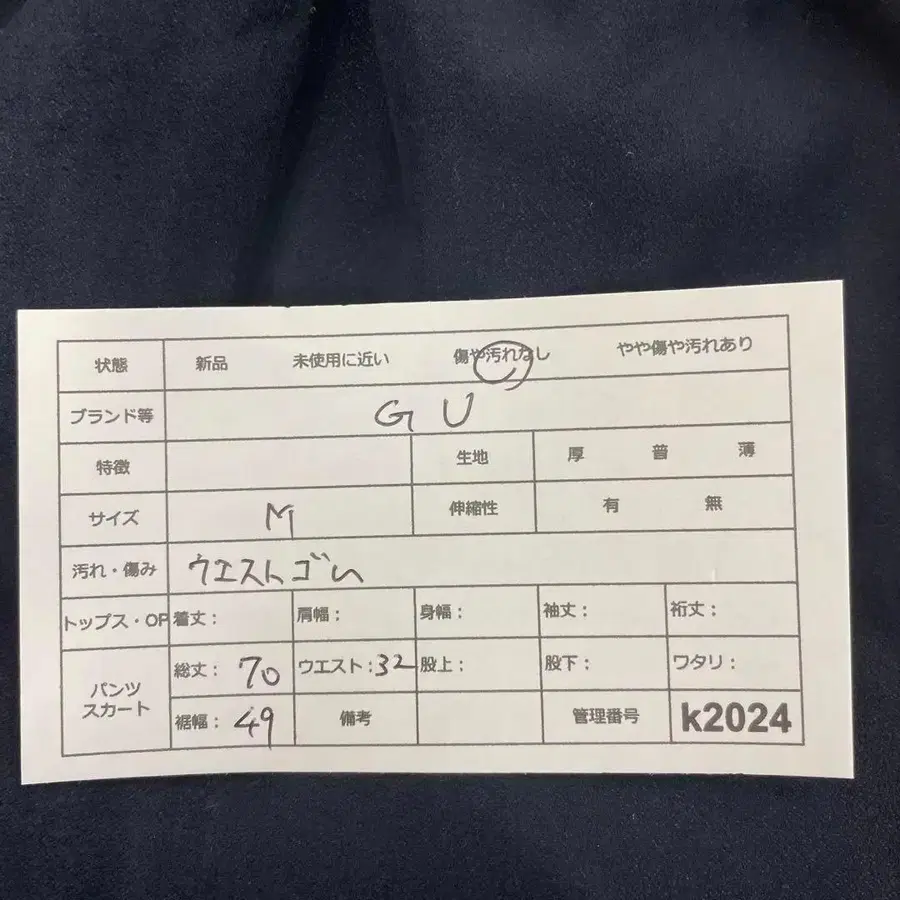 状態 新品 未使用に近い 傷や汚れなし やや傷や汚れあり
ブランド等 GU
特徴 生地 厚 普 薄
サイズ M 伸縮性 有 無
汚れ・傷み ウエストゴム
トップス・OP 着丈： 肩幅： 身幅： 袖丈： 裄丈：
パンツ 総丈：70 ウエスト：32 股上： 股下： ワタリ：
スカート 裾幅：49 備考 管理番号 k2024